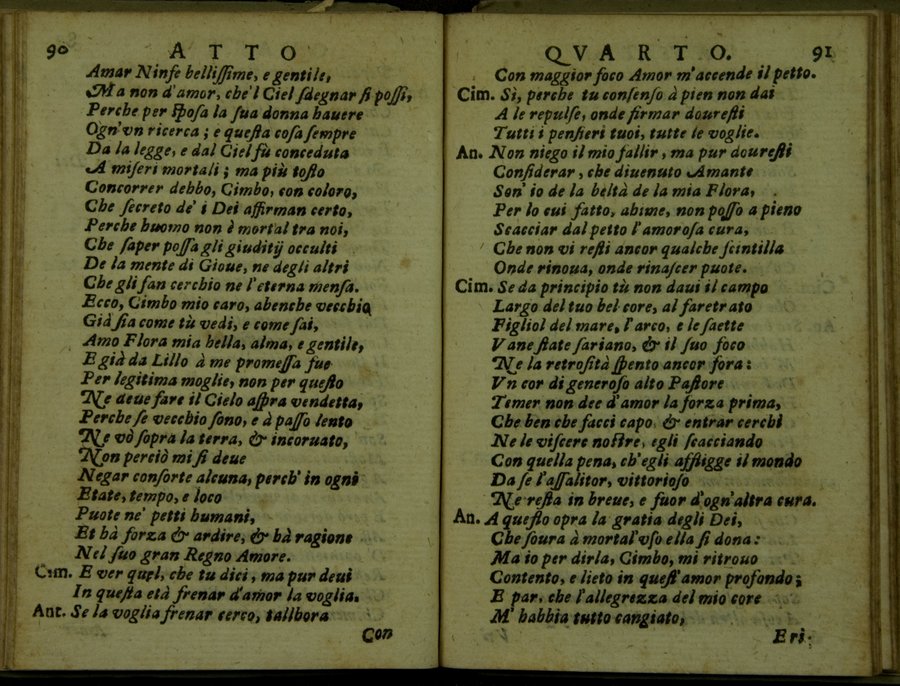 90 ATTO
Amar Ninfe bellissime, e gentile,
Ma non d'amor, che'l Ciel sdegnar si possi,
Perche per sposa la sua donna hauere
Ogn'vn ricerca; e questa cosa sempre
Da la legge, e dal Ciel fù conceduta
A miseri mortali; ma più tosto
Concorrer debbo, Cimbo, con coloro,
Che secreto de' i Dei affirman certo,
Perche huomo non è mortal tra noi,
Che saper possa gli giuditij occulti
De la mente di Gioue, ne degli altri
Che gli fan cerchio ne l'eterna mensa.
Ecco, Cimbo mio caro, abenche vecchio
Già sia come tù vedi, e come sai,
Amo Flora mia bella, alma, e gentile,
E già da Lillo à me promessa fue
Per legitima moglie, non per questo
Ne deue fare il Cielo aspra vendetta,
Perche se vecchio sono, e à passo lento
Ne vò sopra la terra, & incoruato,
Non perciò mi si deue
Negar consorte alcuna, perch' in ogni
Etate, tempo, e loco
Puote ne' petti humani,
Et hà forza & ardire, & hà ragione
Nel suo gran Regno Amore.
Cim. E ver quel, che tu dici, ma pur deui
In questa età frenar d'amor la voglia.
Ant. Se la voglia frenar cerco, tallhora
Con
QVARTO. 91
Con maggior foco Amor m'accende il petto.
Cim. Sì, perche tu consenso à pien non dai
A le repulse, onde firmar douresti
Tutti i pensieri tuoi, tutte le voglie.
An. Non niego il mio fallir, ma pur douresti
Considerar, che diuenuto Amante
Son' io de la beltà de la mia Flora,
Per lo cui fatto, ahime, non posso a pieno
Scacciar dal petto l'amorosa cura,
Che non vi resti ancor qualche scintilla
Onde rinoua, onde rinascer puote.
Cim. Se da principio tù non daui il campo
Largo del tuo bel core, al faretrato
Figliol del mare, l'arco, e le saette
Vane state sariano, & il suo foco
Ne la retrosità spento ancor fora:
Vn cor di generoso alto Pastore
Temer non dee d'amor la forza prima,
Che ben che facci capo, & entrar cerchi
Ne le viscere nostre, egli scacciando
Con quella pena, ch'egli affligge il mondo
Da se l'assalitor, vittorioso
Ne resta in breue, e fuor d'ogn'altra cura.
An. A questo opra la gratia degli Dei,
Che soura à mortal'vso ella si dona:
Ma io per dirla, Cimbo, mi ritrouo
Contento, e lieto in quest'amor profondo;
E par, che l'allegrezza del mio core
M' habbia tutto cangiato,
Eri-